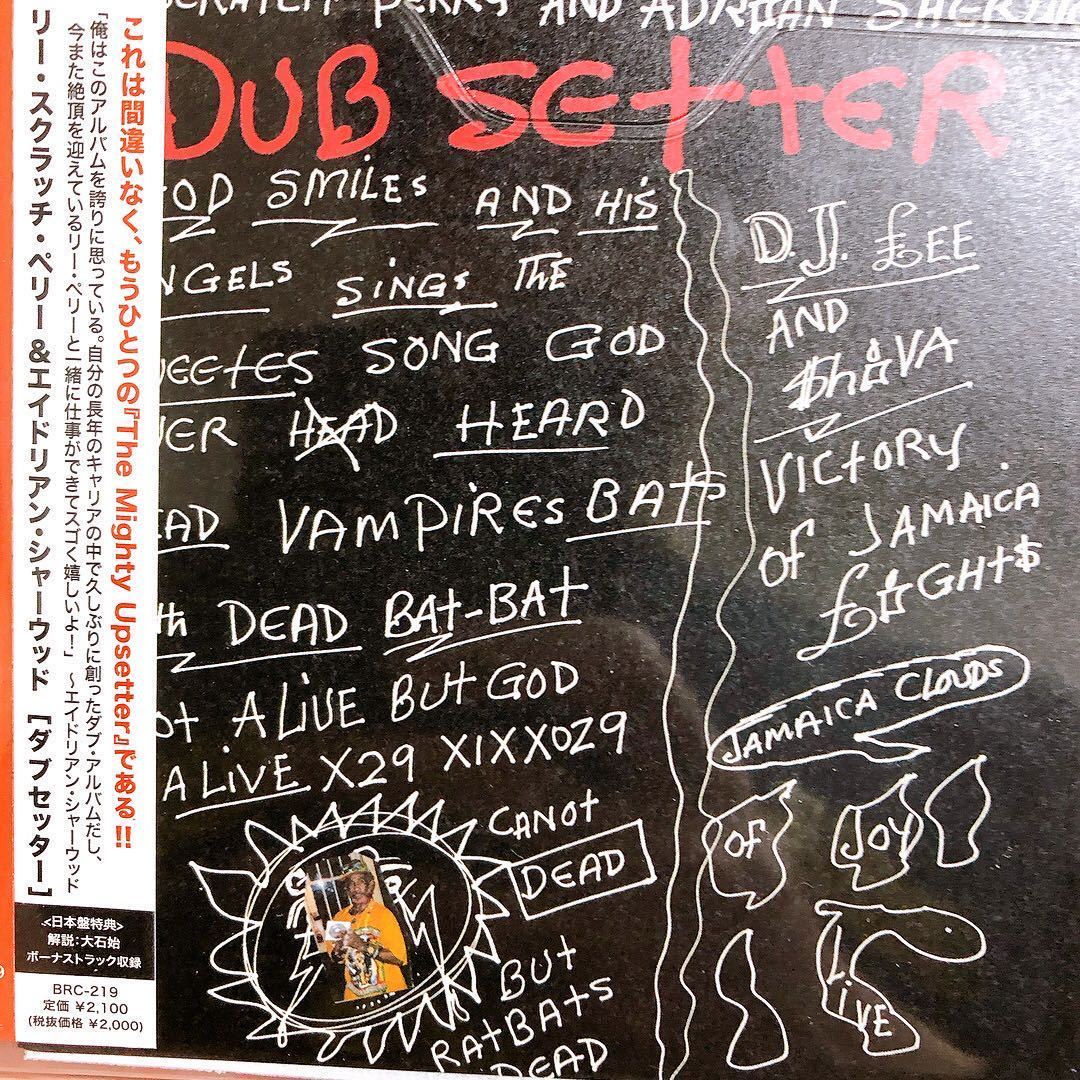 これは間違いなく、もうひとつの『The Mighty Upsetter』である!!
「俺はこのアルバムを誇りに思っている。自分の長年のキャリアの中で久しぶりに創ったダブ・アルバムだし、
今また絶頂を迎えているリー・ペリーと一緒に仕事ができてスゴく嬉しいよ!」 ~エイドリアン・シャーウッド
リー・スクラッチ・ペリー&エイドリアン・シャーウッド [ダブセッター]
<日本盤特典>
解説:大石始
ボーナストラック収録
BRC-219
定価 ¥2,100
(税抜価格 ¥2,000)
SCRATCH PERRY AND ADRIAN
DUB SETTER
OD SMILES AND HIS
NGELS SINGS THE
EETES SONG GOD
ER HEAD HEARD
EAD VAMPIRES BATS
th DEAD BAT-BAT
ot ALIVE BUT GOD
ALIVE X29 XIXXOZ9
CANOT
DEAD
BUT
RATBATS
DEAD
D.J. £EE
AND
$HIVA
VICTORY
OF JAMAICA
£IGHT$
JAMAICA CLOUDS
OF JOY
LIVE